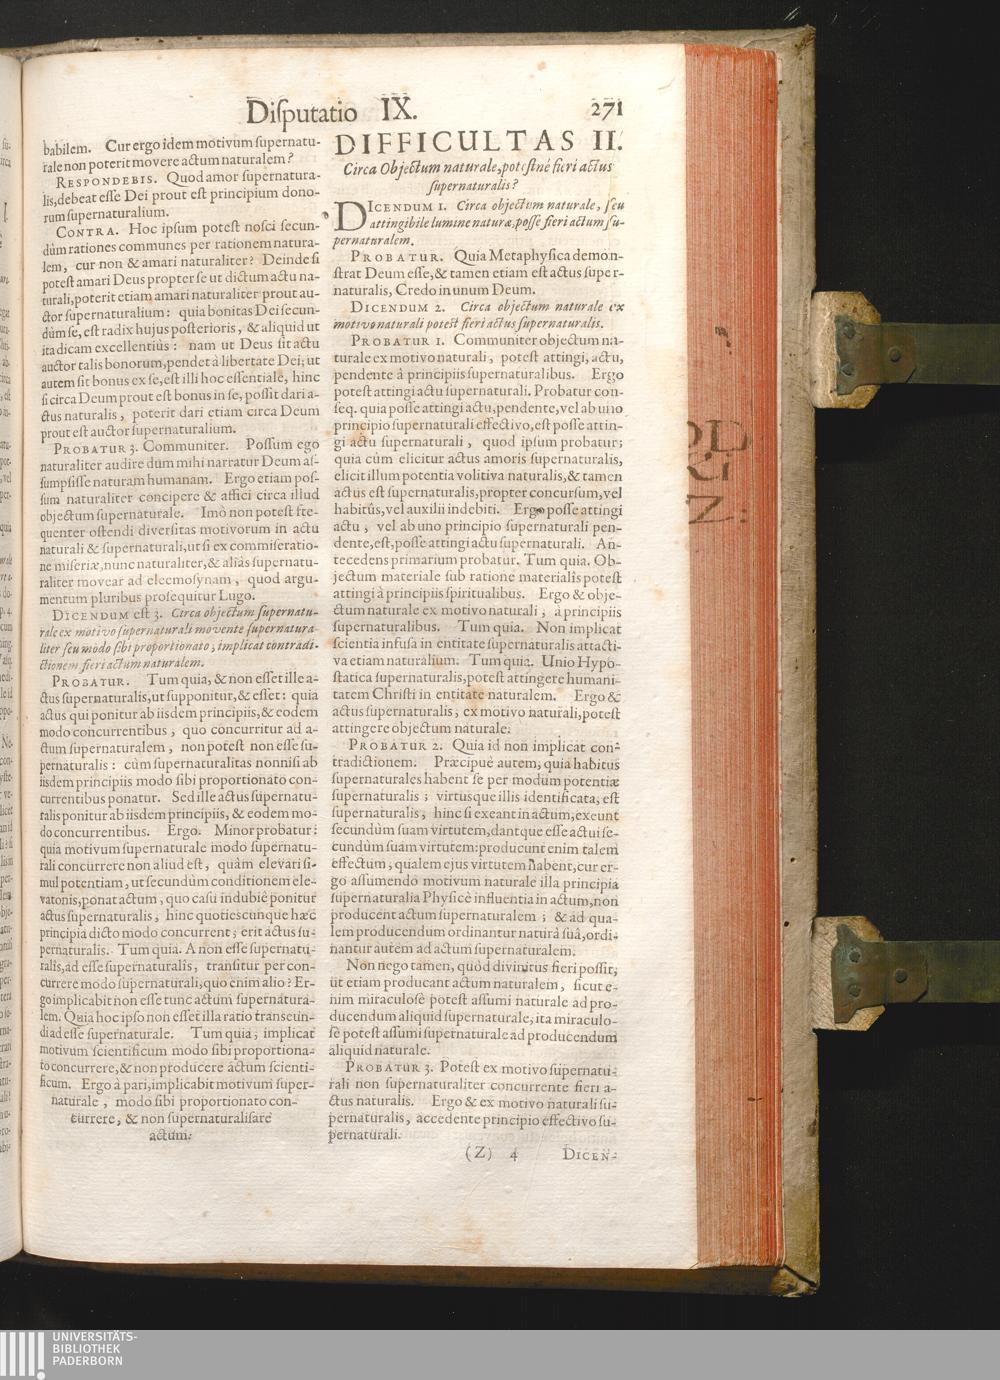 Disputatio IX. 271
babilem. Cur ergo idem motivum supernatu-
rale non poterit movere actum naturalem?
RESPONDEBIS. Quod amor supernatura-
lis, debeat esse Dei prout est principium dono-
rum supernaturalium.
CONTRA. Hoc ipsum potest nosci secun-
dùm rationes communes per rationem natura-
lem, cur non & amari naturaliter? Deinde si
potest amari Deus propter se ut dictum actu na-
turali, poterit etiam amari naturaliter prout au-
ctor supernaturalium: quia bonitas Dei secun-
dùm se, est radix hujus posterioris, & aliquid ut
ita dicam excellentiùs: nam ut Deus sit actu
auctor talis bonorum, pendet à libertate Dei; ut
autem sit bonus ex se, est illi hoc essentiale, hinc
si circa Deum prout est bonus in se, possit dari a-
ctus naturalis, poterit dari etiam circa Deum
prout est auctor supernaturalium.
PROBATUR 3. Communiter. Possum ego
naturaliter audire dum mihi narratur Deum as-
sumpsisse naturam humanam. Ergo etiam pos-
sum naturaliter concipere & affici circa illud
objectum supernaturale. Imò non potest fre-
quenter ostendi diversitas motivorum in actu
naturali & supernaturali, ut si ex commiseratio-
ne miseriæ, nunc naturaliter, & aliàs supernatu-
raliter movear ad eleemosynam, quod argu-
mentum pluribus prosequitur Lugo.
DICENDUM est 3. Circa objectum supernatu-
rale ex motivo supernaturali movente supernatura-
liter seu modo sibi proportionato, implicat contradi-
ctionem fieri actum naturalem.
PROBATUR. Tum quia, & non esset ille a-
ctus supernaturalis, ut supponitur, & esset: quia
actus qui ponitur ab iisdem principiis, & eodem
modo concurrentibus, quo concurritur ad a-
ctum supernaturalem, non potest non esse su-
pernaturalis: cùm supernaturalitas nonnisi ab
iisdem principiis modo sibi proportionato con-
currentibus ponatur. Sed ille actus supernatu-
ralis ponitur ab iisdem principiis, & eodem mo-
do concurrentibus. Ergo. Minor probatur:
quia motivum supernaturale modo supernatu-
rali concurrere non aliud est, quàm elevari si-
mul potentiam, ut secundùm conditionem ele-
vationis, ponat actum, quo casu indubiè ponitur
actus supernaturalis, hinc quotiescunque hæc
principia dicto modo concurrent; erit actus su-
pernaturalis. Tum quia. A non esse supernatu-
ralis, ad esse supernaturalis, transitur per con-
currere modo supernaturali; quo enim alio? Er-
go implicabit non esse tunc actum supernatura-
lem. Quia hoc ipso non esset illa ratio transeun-
di ad esse supernaturale. Tum quia, implicat
motivum scientificum modo sibi proportiona-
to concurrere, & non producere actum scienti-
ficum. Ergo à pari, implicabit motivum super-
naturale, modo sibi proportionato con-
currere, & non supernaturalisare
actum.
DIFFICULTAS II.
Circa Objectum naturale, potestnè fieri actus
supernaturalis?
DICENDUM 1. Circa objectum naturale, seu
attingibile lumine naturæ, posse fieri actum su-
pernaturalem.
PROBATUR. Quia Metaphysica demon-
strat Deum esse, & tamen etiam est actus super-
naturalis, Credo in unum Deum.
DICENDUM 2. Circa objectum naturale ex
motivo naturali potest fieri actus supernaturalis.
PROBATUR 1. Communiter objectum na-
turale ex motivo naturali, potest attingi, actu,
pendente à principiis supernaturalibus. Ergo
potest attingi actu supernaturali. Probatur con-
seq. quia posse attingi actu, pendente, vel ab uno
principio supernaturali effectivo, est posse attin-
gi actu supernaturali, quod ipsum probatur;
quia cùm elicitur actus amoris supernaturalis,
elicit illum potentia volitiva naturalis, & tamen
actus est supernaturalis, propter concursum, vel
habitûs, vel auxilii indebiti. Ergo posse attingi
actu, vel ab uno principio supernaturali pen-
dente, est, posse attingi actu supernaturali. An-
tecedens primarium probatur. Tum quia. Ob-
jectum materiale sub ratione materialis potest
attingi à principiis spiritualibus. Ergo & obje-
ctum naturale ex motivo naturali, à principiis
supernaturalibus. Tum quia. Non implicat
scientia infusa in entitate supernaturalis attacti-
va etiam naturalium. Tum quia. Unio Hypo-
statica supernaturalis, potest attingere humani-
tatem Christi in entitate naturalem. Ergo &
actus supernaturalis, ex motivo naturali, potest
attingere objectum naturale.
PROBATUR 2. Quia id non implicat con-
tradictionem. Præcipuè autem, quia habitus
supernaturales habent se per modum potentiæ
supernaturalis; virtusque illis identificata, est
supernaturalis, hinc si exeant in actum, exeunt
secundùm suam virtutem, dantque esse actui se-
cundùm suam virtutem: producunt enim talem
effectum, qualem ejus virtutem habent, cur er-
go assumendo motivum naturale illa principia
supernaturalia Physicè influentia in actum, non
producent actum supernaturalem; & ad qua-
lem producendum ordinantur naturâ suâ, ordi-
nantur autem ad actum supernaturalem.
Non nego tamen, quòd divinitus fieri possit,
ut etiam producant actum naturalem, sicut e-
nim miraculosè potest assumi naturale ad pro-
ducendum aliquid supernaturale, ita miraculo-
sè potest assumi supernaturale ad producendum
aliquid naturale.
PROBATUR 3. Potest ex motivo supernatu-
rali non supernaturaliter concurrente fieri a-
ctus naturalis. Ergo & ex motivo naturali su-
pernaturalis, accedente principio effectivo su-
pernaturali.
(Z) 4 DICEN-
UNIVERSITÄTS-
BIBLIOTHEK
PADERBORN